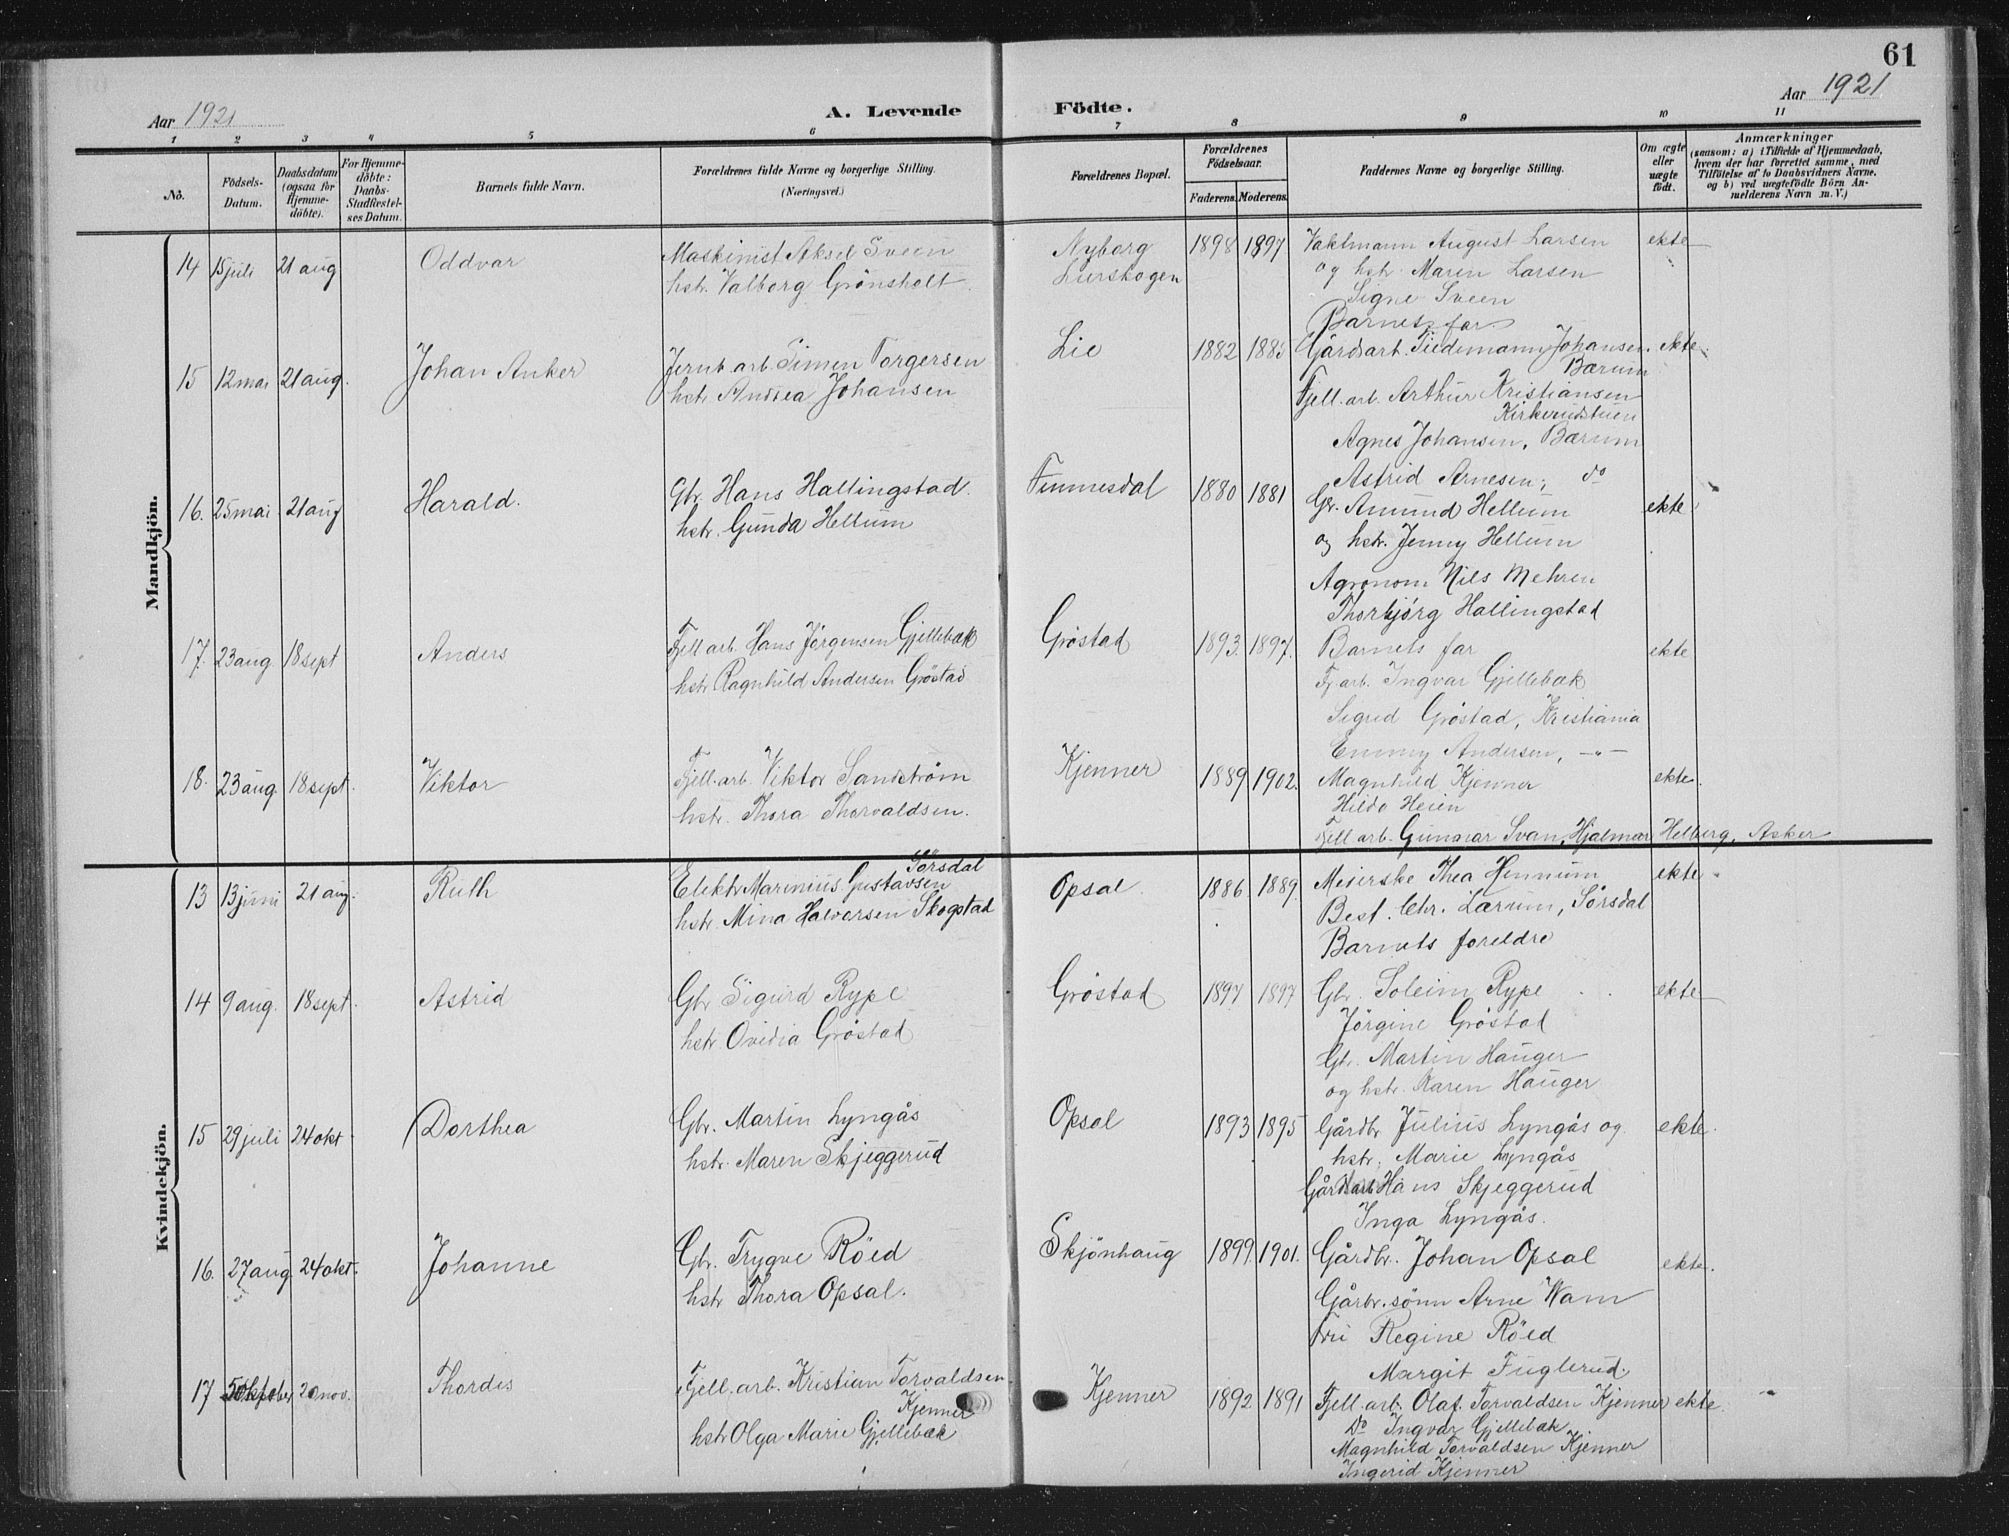 61
Aar 1921
A. Levende Födte.
Aar 1921
1 2 3 4 5 6 7 8 9 10 11
No.
Födsels-Datum.
Daabsdatum (ogsaa for Hjemme-döbte).
For Hjemme-döbte: Daabs-Stadfæstel-ses Datum.
Barnets fulde Navn.
Forældrenes fulde Navne og borgerlige Stilling.
(Næringsvei.)
Forældrenes Bopæl.
Forældrenes Födselsaar.
Faderens. Moderens.
Faddernes Navne og borgerlige Stilling.
Om ægte eller uægte født.
Anmærkninger
(saasom: a) i Tilfælde af Hjemmedaab,
hvem der har forrettet samme, med
Tilföielse af to Daabsvidners Navne,
og b) ved uægtefödte Börn An-
melderens Navn m. V.)
Mandkjön.
14 15 juli 21 aug Oddvar Maskinist Aksel Sveen Nyborg 1898 1897 Vaktmann August Larsen ekte
hstr. Valborg Grönsholt. Lierskogen og hstr. Maren Larsen
Signe Sveen
Barnets far
15 12 mai 21 aug. Johan Anker Jernb. arb. Simen Torgersen Lie 1882 1885 Gårdsarb. Tiedemann Johansen. ekte
hstr. Andrea Johansen Bærum
Fjell. arb. Arthur Kristiansen
Kirkerudstuen
Agnes Johansen, Bærum
Astrid Arnesen, do
16. 25 mai 21 aug Harald. Gbr. Hans Hallingstad. 1880 1881 Gbr. Amund Hellum ekte
hstr. Gunda Hellum og hstr. Jenny Hellum
Agronom Nils Mehren
Thorbjörg Hallingstad
17. 23 aug. 18 sept Anders Fjell arb. Hans Jörgensen Gjellebæk Gröstad 1893. 1897. Barnets far ekte
hstr Ragnhild Andersen Gröstad Fj. arb. Ingvar Gjellebæk
Sigrid Gröstad, Kristiania
Emmy Andersen, -"-
18. 23 aug 18 sept. Viktor Fjell. arb. Viktor Sandström Kjenner 1889 1902. Magnhild Kjenner ekte.
hstr. Thora Thorvaldsen. Hilda Heien
Fjell arb. Gunnar Svan, Hjalmar Helberg, Asker
Kvindekjön.
13 13 juni 21 aug. Ruth Elektr. Marinius Gustavsen Sörsdal Opsal. 1886 1889. Meierske Thea Hennum ekte
hstr. Mina Halvorsen Skogstad Best. Chr. Lærum, Sörsdal
Barnets foreldre
14 9 aug. 18 sept. Astrid Gbr Sigurd Rype Gröstad 1897 1897 Gbr. Soleim Rype ekte
hstr. Ovidia Gröstad Jörgine Gröstad
Gbr. Martin Hauger
og hstr. Karen Hauger
15 29 juli 24 okt. Dorthea Gbr. Martin Lyngås Opsal 1893 1895 Gårdbr. Julius Lyngås og ekte.
hstr. Maren Skjeggerud hstr. Marie Lyngås
Gårdarb Hans Skjeggerud
Inga Lyngås.
16. 27 aug. 24 okt. Johanne Gbr. Trygve Röed Skjönhaug 1899. 1901. Gårdbr. Johan Opsal ekte.
hstr Thora Opsal. Gårbr. sönn Arne Wam
Fru Regine Röed
Margit Fuglerud.
17 5 oktober 20 nov. Thordis Fjell. arb. Kristian Torvaldsen Kjenner 1892 1891 Fjell. arb. Olaf Torvaldsen Kjenner ekte.
Kjenner Do Ingvar Gjellebæk.
hstr Olga Marie Gjellebæk Magnhild Torvaldsen Kjenner
Ingerid Kjenner